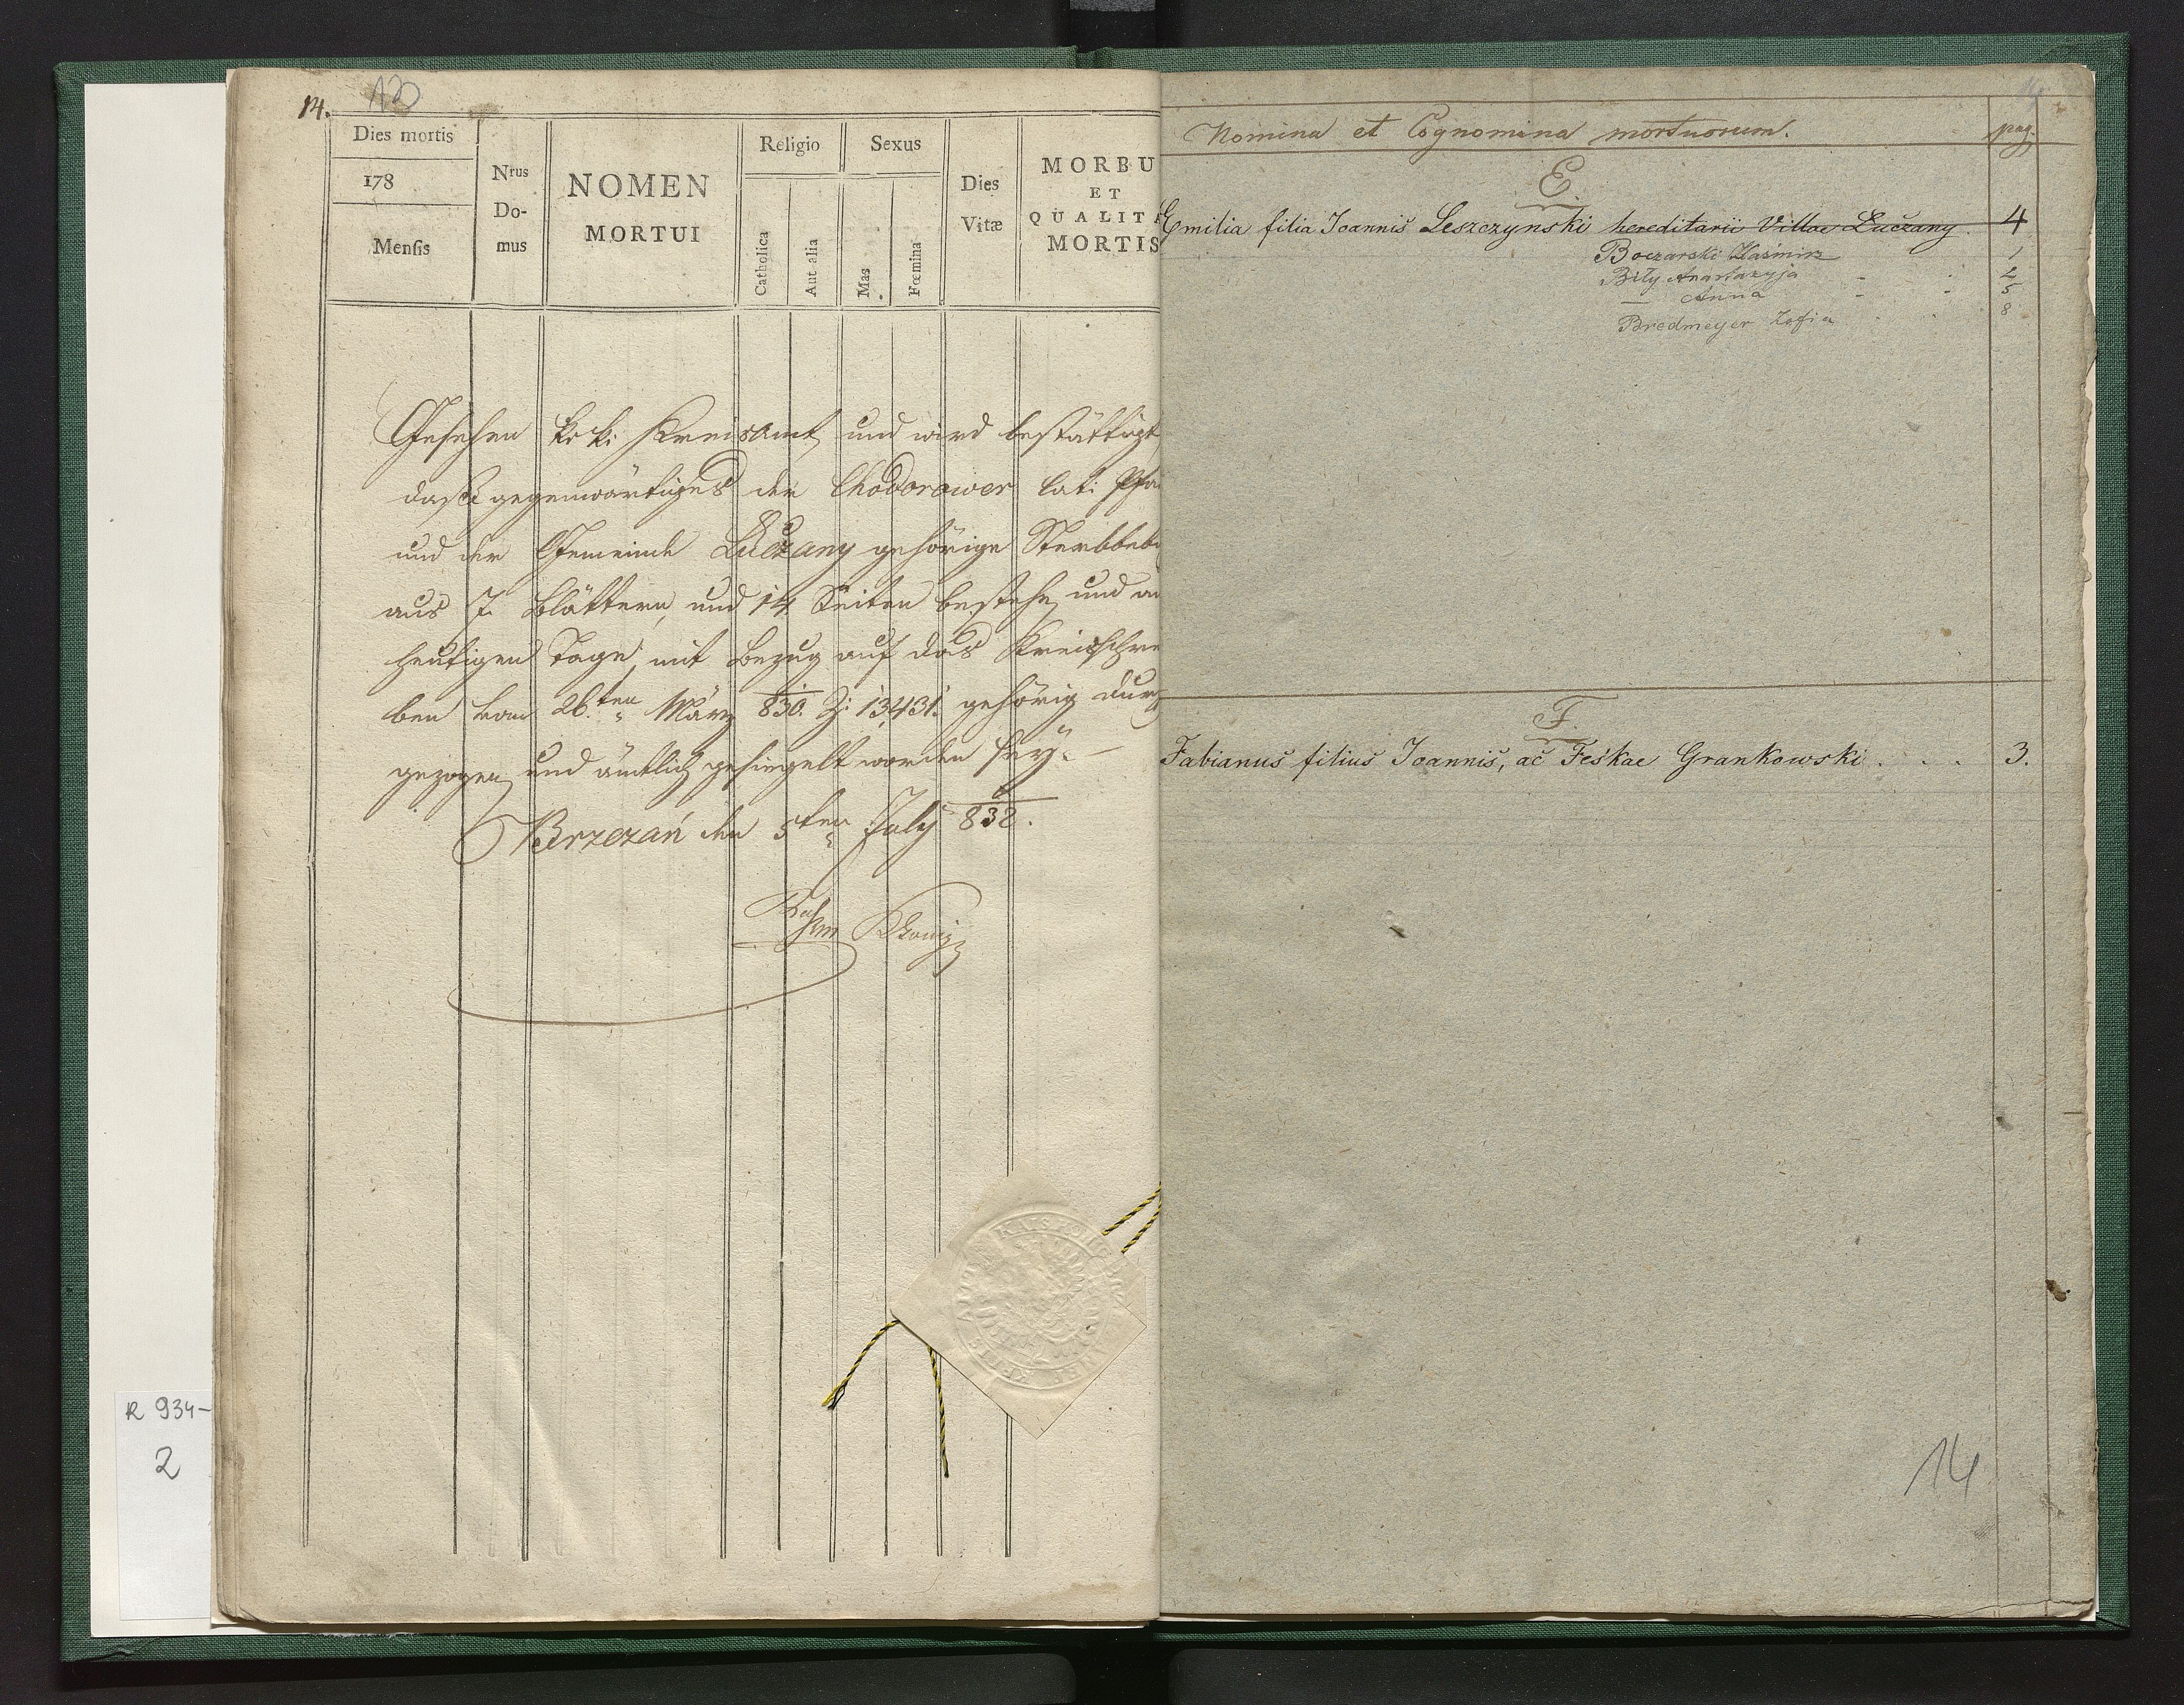 14.
13
Dies mortis
178
Mensis
Nrus
Do-
mus
NOMEN
MORTUI
Religio
Catholica
Aut alia
Sexus
Mas
Fœmina
Dies
Vitæ
MORBU
ET
QUALIT
MORTIS
Gesehen k: k: Kreisamt, und wird bestättigt
daß gegenwärtiges der Chodorower lat: Pfa
und der Gemeinde Łuczany gehörige Sterbbe
aus 7. Blättern, und 14 Seiten bestehe, und a
heutigen Tage, mit Bezug auf das Kreisschre
ben vom 26.ten März 830. Z: 13431. gehörig durch
gezogen, und ämtlich gesiegelt worden sey.
Brzezań den 5ten July 832.
Nomina et Cognomina mortuorum.
pag.
E.
Emilia filia Joannis Leszczynski hereditarii Villae Łuczany. 4
Boczarski 1
Biły Anastazyja - - 2
— Anna - - 5
Bredmeyer Zofia 8
F.
Fabianus filius Joannis, ac Feskae Grankowski . . . 3.
14
R 934-
2